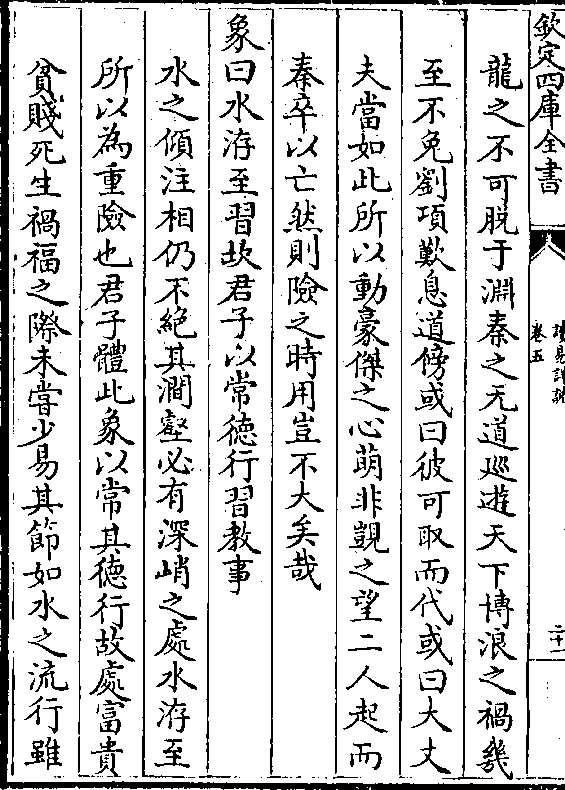 欽定四庫全書
讀易詳說
卷五
二十一
龍之不可脱于淵秦之无道廵遊天下博浪之禍幾
至不免劉項歎息道傍或曰彼可取而代或曰大丈
夫當如此所以動豪傑之心萌非覬之望二人起而
秦卒以亡然則險之時用豈不大矣哉
象曰水洊至習坎君子以常徳行習教事
水之傾注相仍不絶其澗壑必有深峭之處水洊至
所以為重險也君子體此象以常其徳行故處富貴
貧賤死生禍福之際未嘗少易其節如水之流行雖